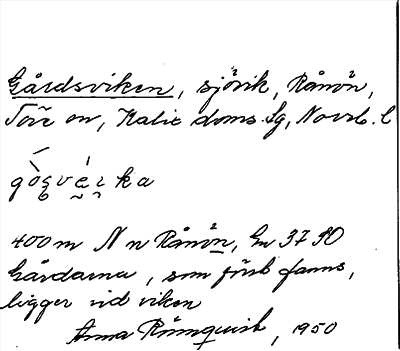 Gårdsviken, sjövik, Rånön,
Töre sn, Kalix doms. lg, Norrb. l
400 m N n Rånön, Gn 37 30
Gårdarna, som förb fanns,
ligger vid viken
Anna Rönnquist, 1950